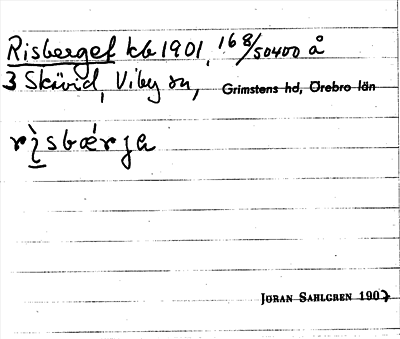 Risberget kb 1901, 168/50400 å
3 Skävid, Viby sn, Grimstens hd, Örebro län
rìsbǽrja
JÖRAN SAHLGREN 1907